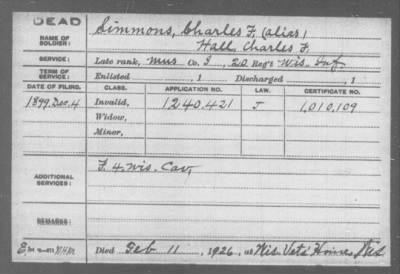 DEAD
NAME OF SOLDIER: Simmons, Charles F. (alias)
Hall, Charles F.
SERVICE: Late rank, mus Co. I, 20 Reg't Wis. Inf.
TERM OF SERVICE: Enlisted , 1 Discharged , 1
DATE OF FILING. CLASS. APPLICATION NO. LAW. CERTIFICATE NO.
1899, Dec. 4 Invalid, 1240,421 J 1,010,109
Widow,
Minor,
ADDITIONAL SERVICES: F. 4. Wis. Cav,
REMARKS:
Died Feb 11, 1926, at Wis. Vets' Home, Wis